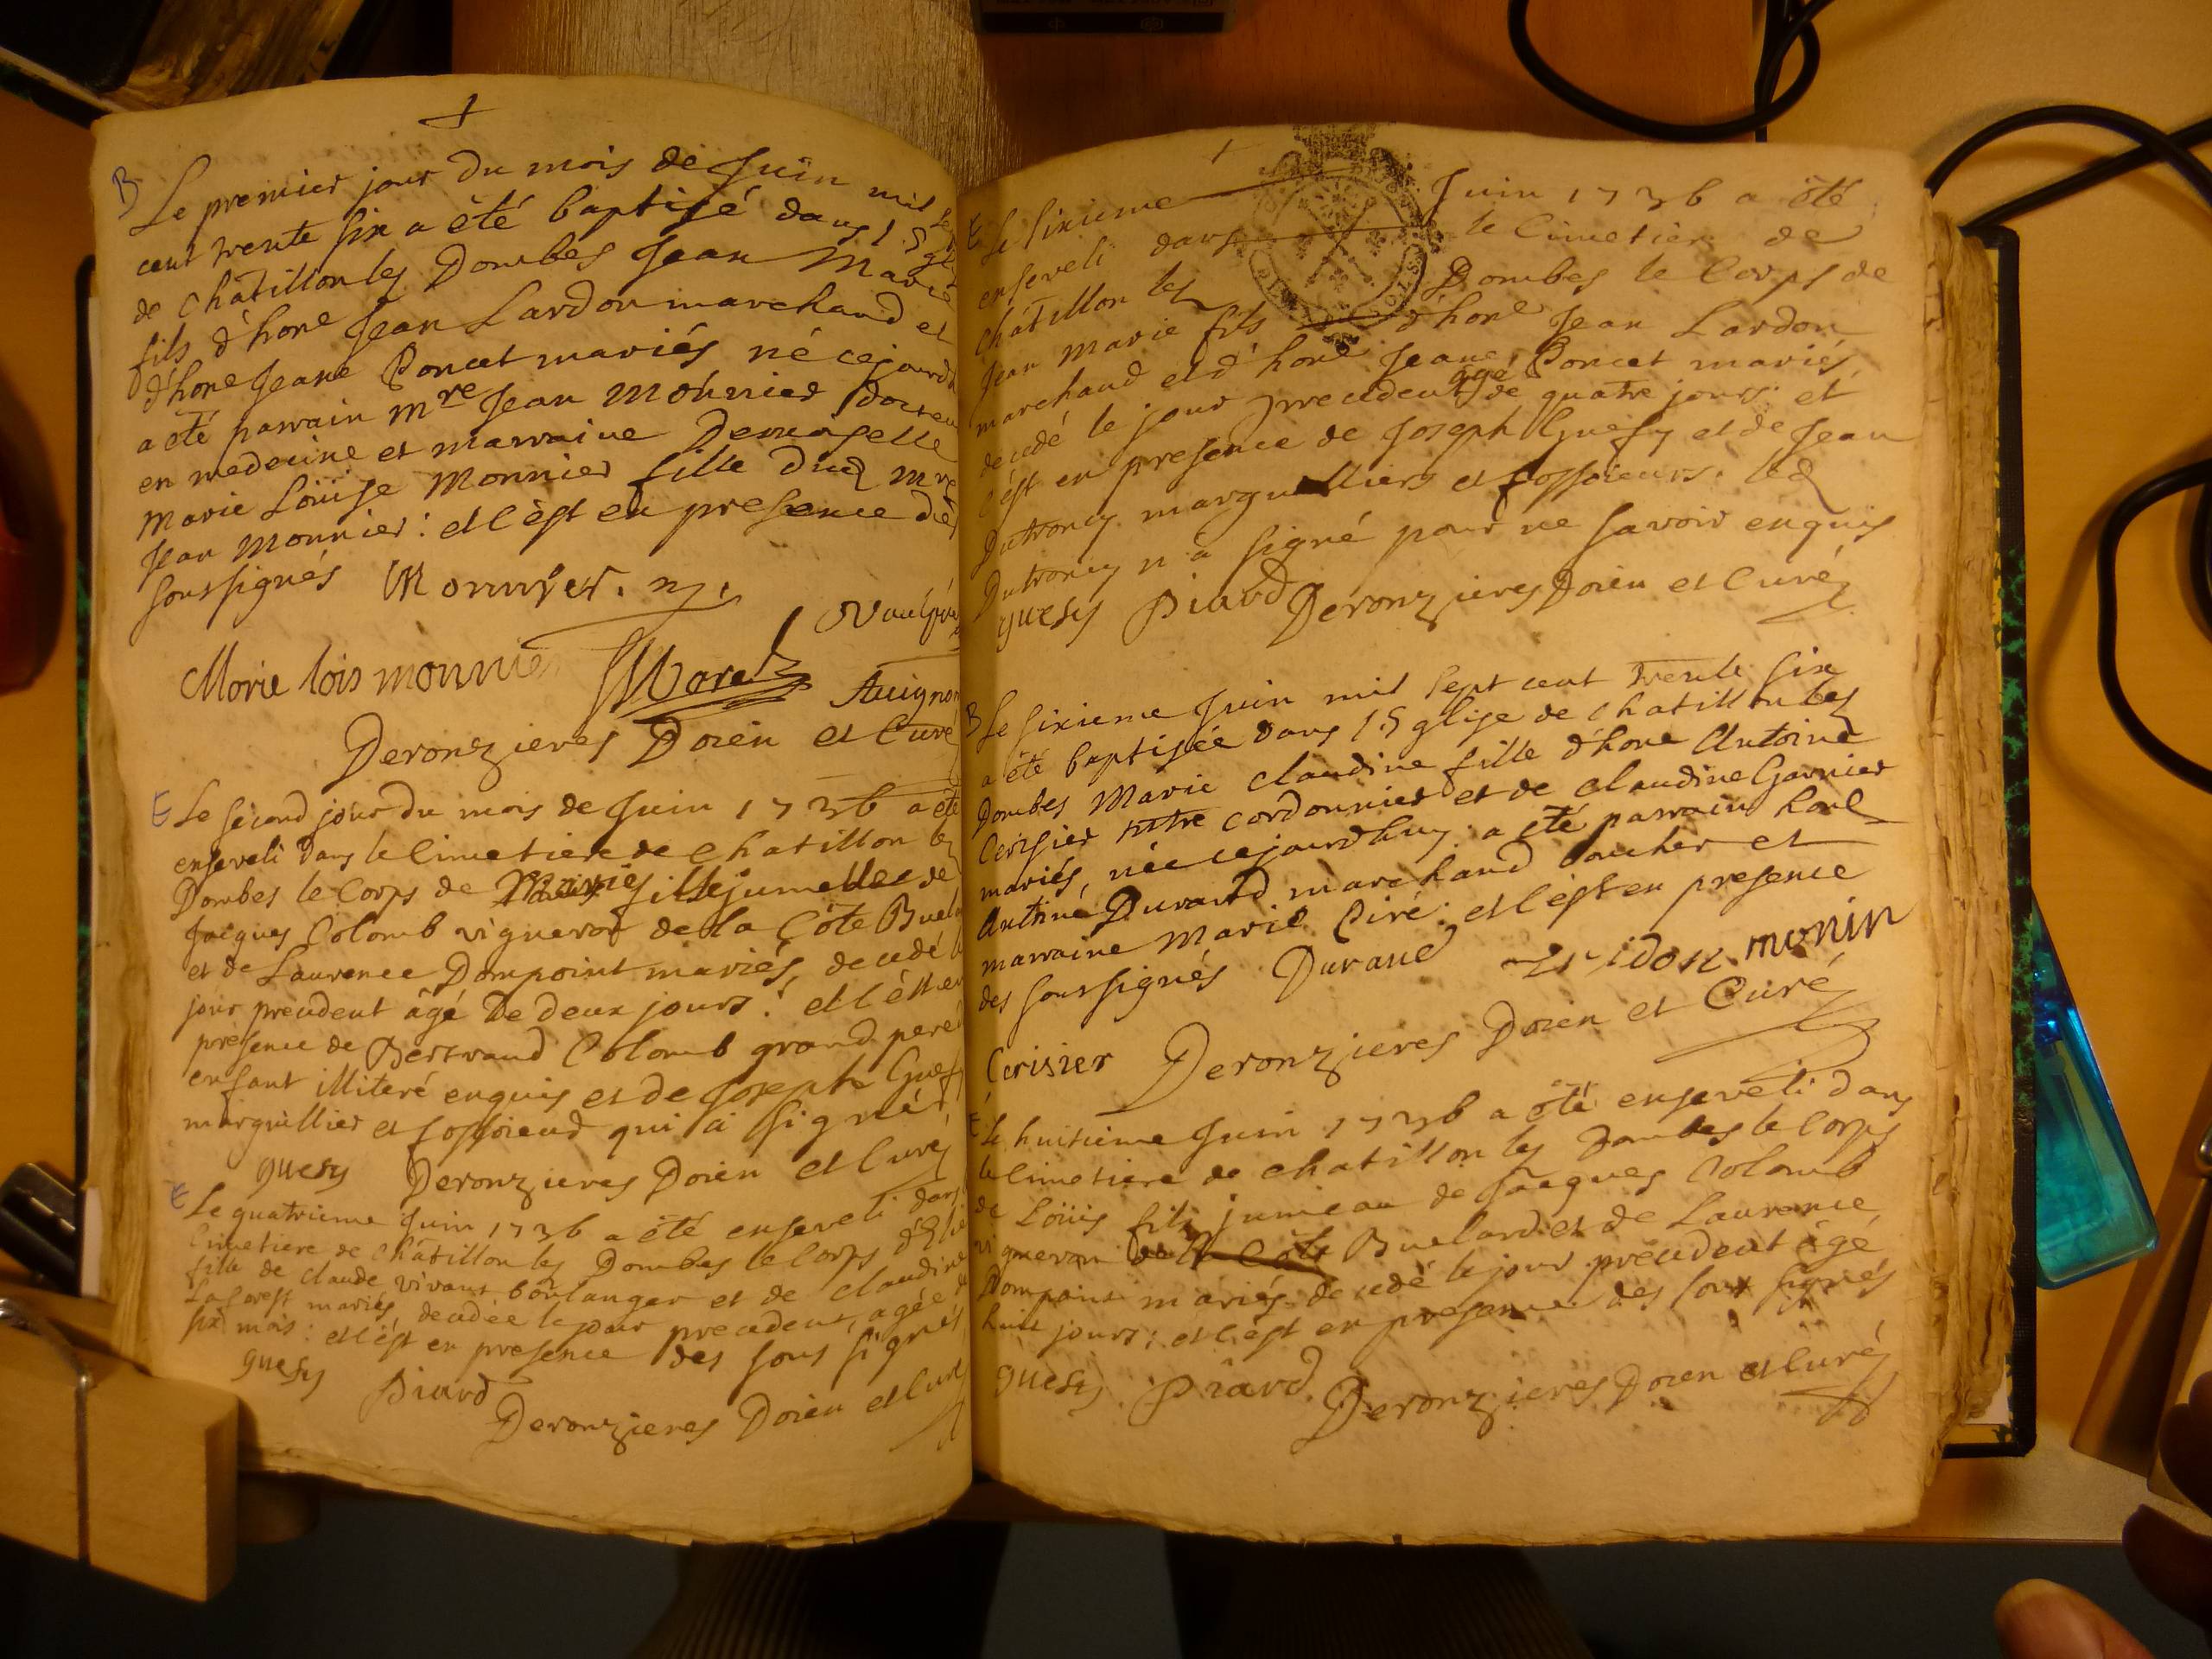 B
Le premier jour du mois de Juin mil sept
cent trente six a été baptisé dans l'Eglise
de Châtillon les Dombes Jean Marie
fils d'hone Jean Lardon marchand et
d'hone Jeane Poncet mariés né cejourd
a été parrain Mre Jean Monnier docteu
en medecine et marraine Demoiselle
Marie Loüise Monnier fille dud Mre
Jean Monnier : et c'est en presence des
soussignés Monnyer. m.
Marie lois monnier Avignon
Deronzieres Doien et Curé
E
Le second jour du mois de Juin 1736 a été
enseveli dans le Cimetiere de Chatillon les
Dombes le Corps de fille jumelle de
Jacques Colomb vigneron de la Côte Buela
et de Laurence Dompoint mariés, decedé le
jour precedent âgé de deux jours : et c'est en
presence de Bertrand Colomb grand pere
enfant illiteré enquis et de Joseph Guesy
marguillier et fossoieur qui a signé
guesy Deronzieres Doien et Curé
E
Le quatrieme Juin 1736 a été enseveli dans
Cimetiere de Châtillon les Dombes le Corps
fille de Claude vivant boulanger et de Claudine
Laforest mariés, decedée le jour precedent, agée de
six mois : et c'est en presence des sous signés
guesy Piard
Deronzieres Doien et Curé
E
Le sixieme Juin 1736 a été
enseveli dans le Cimetiere de
Châtillon les Dombes le Corps de
Jean Marie fils d'hone Jean Lardon
marchand et d'hone Jeane Poncet mariés,
decedé le jour precedent agé de quatre jours : et
c'est en presence de Joseph Guesy et de Jean
Dutroncy marguilliers et fossoieurs. led
Dutroncy n'a signé pour ne savoir enquis
guesy Piard Deronzieres Doien et Curé
B
Le sixieme Juin mil sept cent trente six
a été baptisée dans l'Eglise de Chatillon les
Dombes Marie Claudine fille d'hone Antoine
Cerisier mtre cordonnier et de Claudine Garnier
mariés, née cejourdhuy : a été parrain hone
Antoine Durand marchand boucher et
marraine Marie Ciré : et c'est en presence
des soussignés Durand monin
Cerisier Deronzieres Doien et Curé
E
Le huitieme Juin 1736 a été enseveli dans
le Cimetiere de Chatillon les Dombes le Corps
de Loüis fils jumeau de Jacques Colomb
vigneron de la Côte Buelard et de Laurence
Dompoint mariés decedé le jour precedent âgé
huit jours ; et c'est en presence des sous signés
guesy Piard Deronzieres Doien et Curé